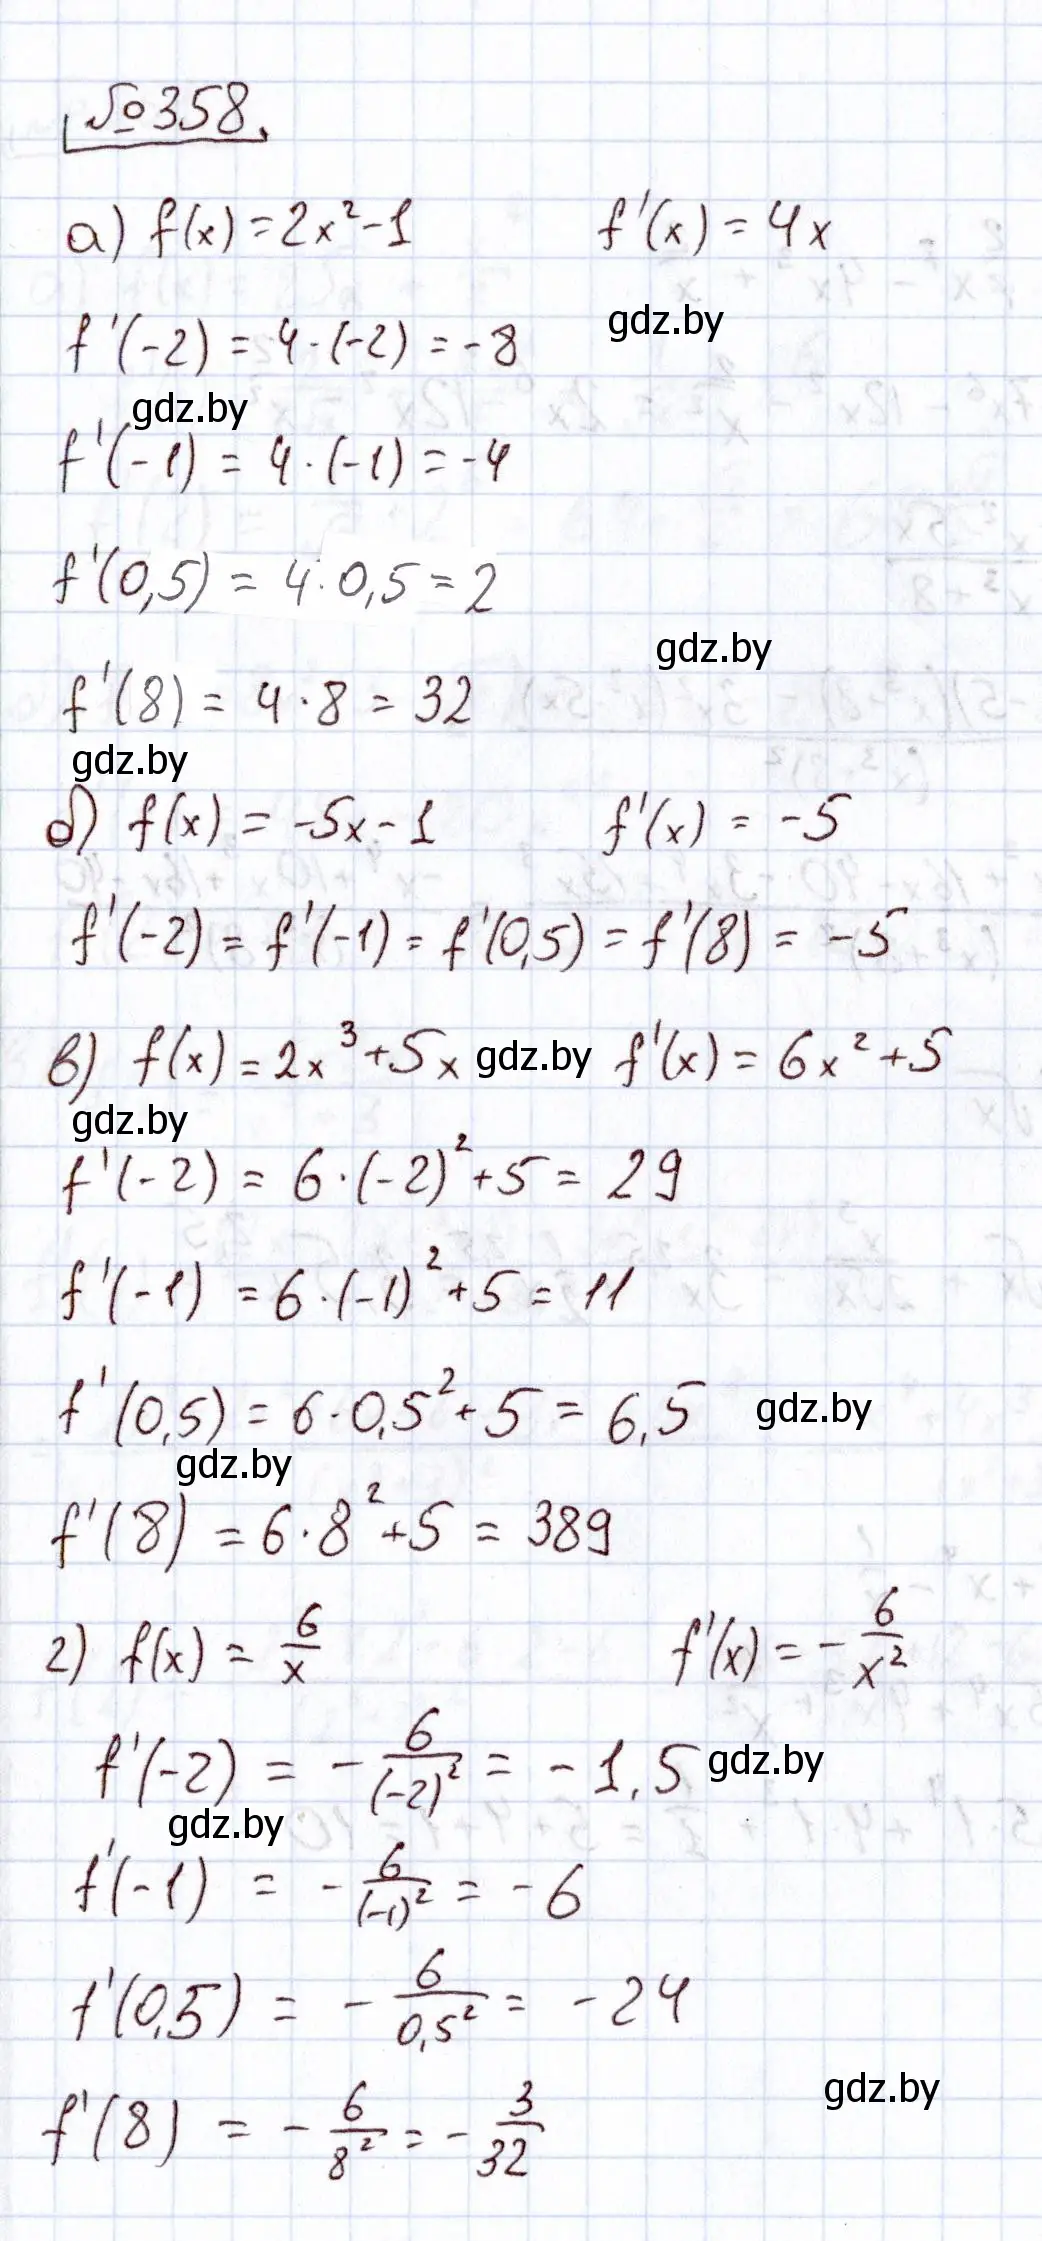 №358.
а) f(x) = 2x² - 1    f'(x) = 4x
f'(-2) = 4·(-2) = -8
gdz.by
gdz.by
f'(-1) = 4·(-1) = -4
f'(0,5) = 4·0,5 = 2
gdz.by
f'(8) = 4·8 = 32
gdz.by
б) f(x) = -5x - 1    f'(x) = -5
f'(-2) = f'(-1) = f'(0,5) = f'(8) = -5
в) f(x) = 2x³ + 5x gdz.by f'(x) = 6x² + 5
gdz.by
f'(-2) = 6·(-2)² + 5 = 29
f'(-1) = 6·(-1)² + 5 = 11
f'(0,5) = 6·0,5² + 5 = 6,5 gdz.by
gdz.by
f'(8) = 6·8² + 5 = 389
г) f(x) = 6/x    f'(x) = - 6/x²
f'(-2) = - 6/(-2)² = -1,5 gdz.by
gdz.by
f'(-1) = - 6/(-1)² = -6
f'(0,5) = - 6/0,5² = -24
gdz.by
f'(8) = - 6/8² = - 3/32